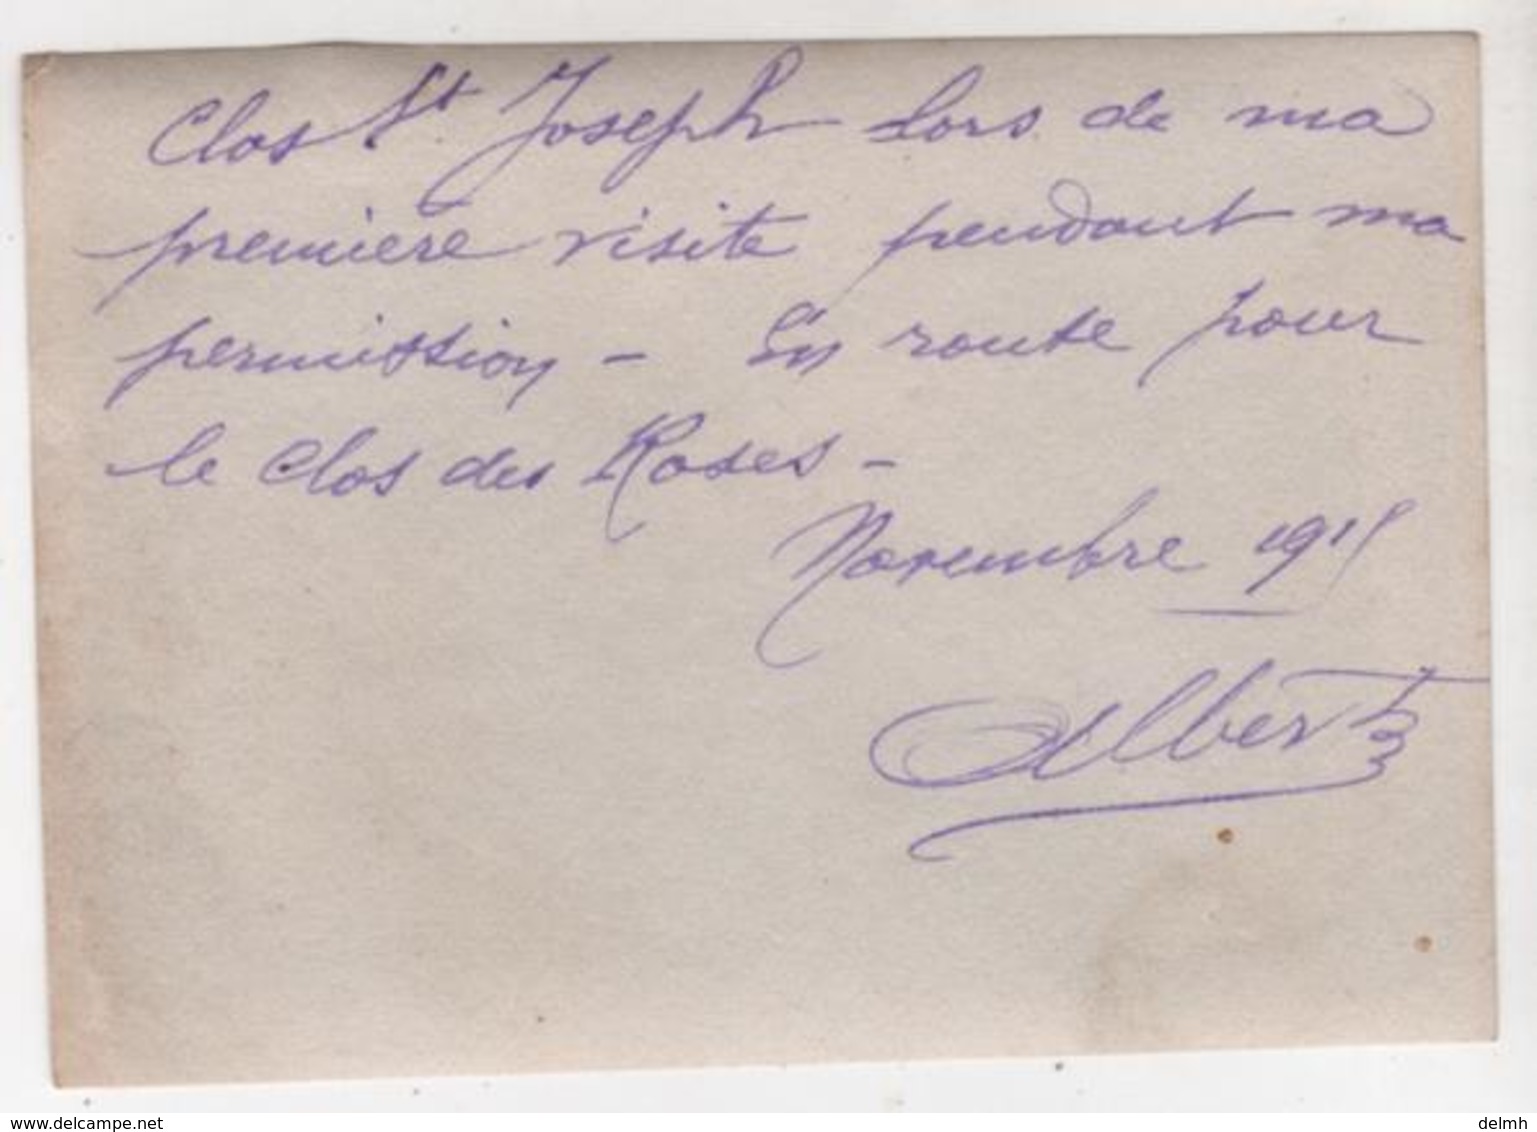 Clos St Joseph Lors de ma
première visite pendant ma
permission - En route pour
le Clos des Roses -
Novembre 1915
Albert
www.delcampe.net
delmh